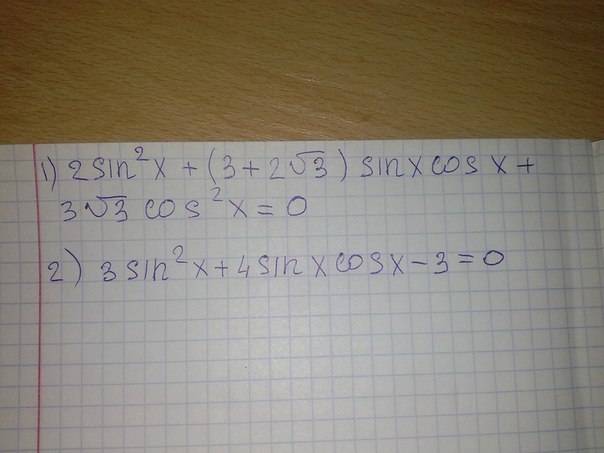 1) 2 sin²x + (3 + 2√3) sinx cos x +
3√3 cos²x = 0
2) 3 sin²x + 4 sin x cosx - 3 = 0